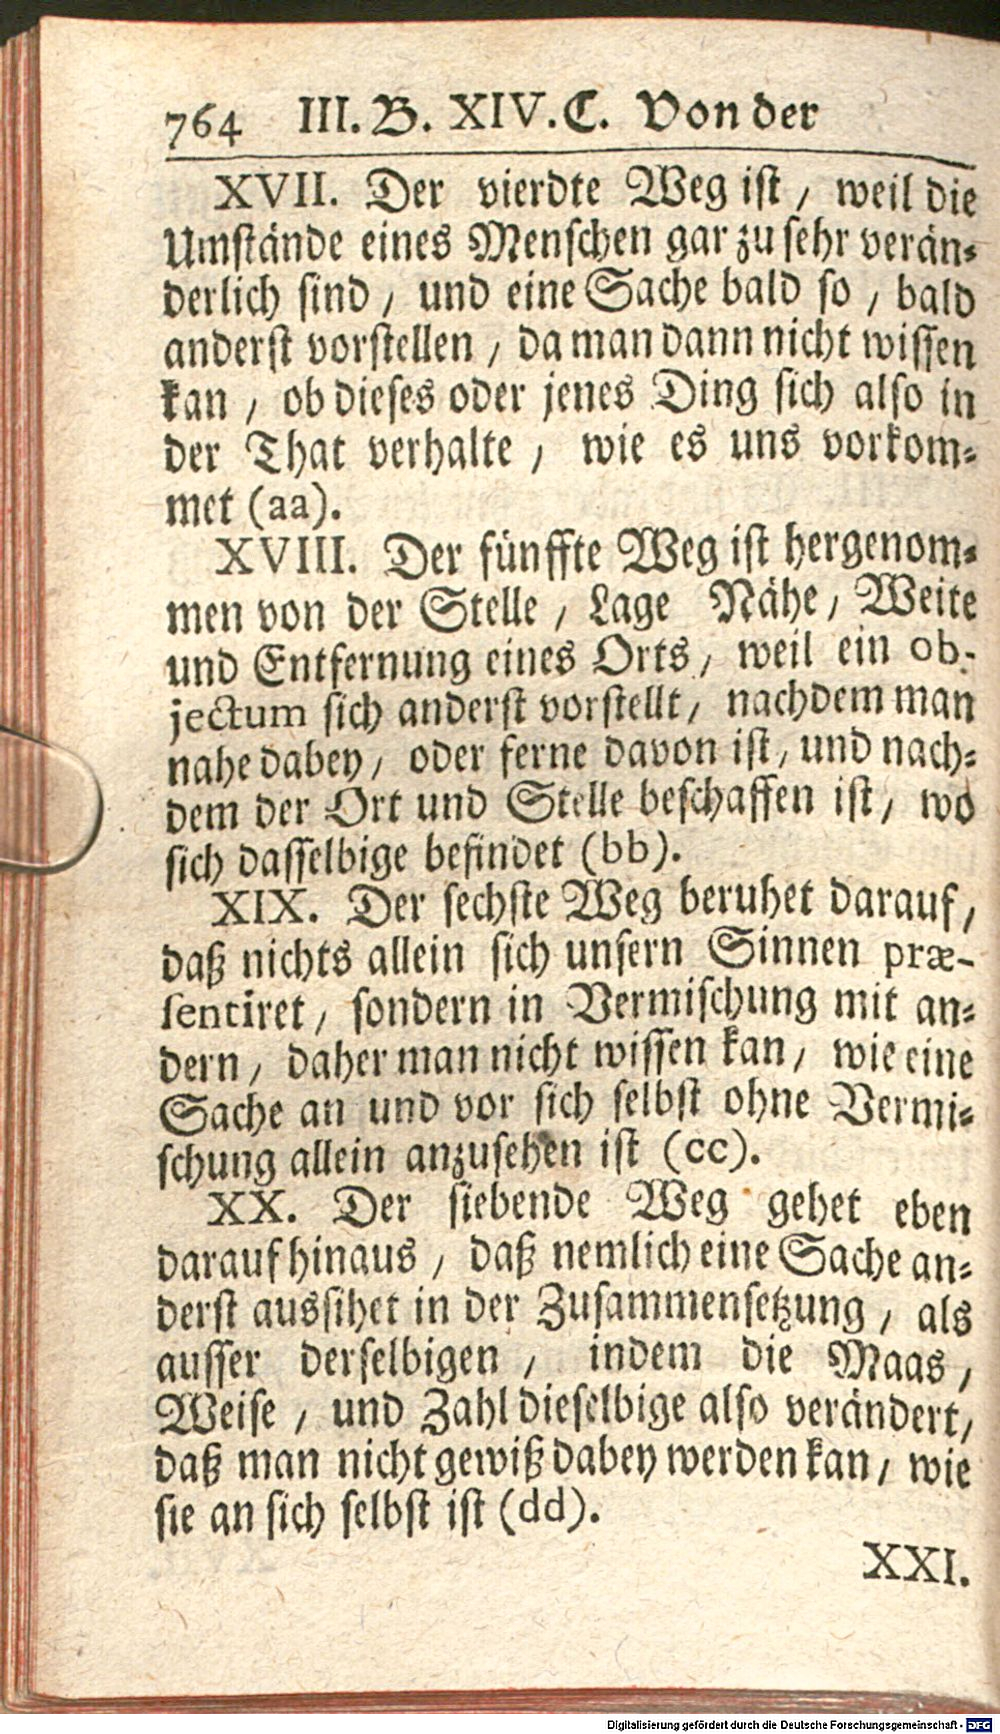 764 III. B. XIV. C. Von der
XVII. Der vierdte Weg ist / weil die
Umstände eines Menschen gar zu sehr verän-
derlich sind / und eine Sache bald so / bald
anderst vorstellen / da man dann nicht wissen
kan / ob dieses oder jenes Ding sich also in
der That verhalte / wie es uns vorkom-
met (aa).
XVIII. Der fünffte Weg ist hergenom-
men von der Stelle / Lage Nähe / Weite
und Entfernung eines Orts / weil ein ob-
jectum sich anderst vorstellt / nachdem man
nahe dabey / oder ferne davon ist / und nach-
dem der Ort und Stelle beschaffen ist / wo
sich dasselbige befindet (bb).
XIX. Der sechste Weg beruhet darauf /
daß nichts allein sich unsern Sinnen præ-
sentiret / sondern in Vermischung mit an-
dern / daher man nicht wissen kan / wie eine
Sache an und vor sich selbst ohne Vermi-
schung allein anzusehen ist (cc).
XX. Der siebende Weg gehet eben
darauf hinaus / daß nemlich eine Sache an-
derst aussihet in der Zusammensetzung / als
ausser derselbigen / indem die Maas /
Weise / und Zahl dieselbige also verändert /
daß man nicht gewiß dabey werden kan / wie
sie an sich selbst ist (dd).
XXI.
Digitalisierung gefördert durch die Deutsche Forschungsgemeinschaft - DFG